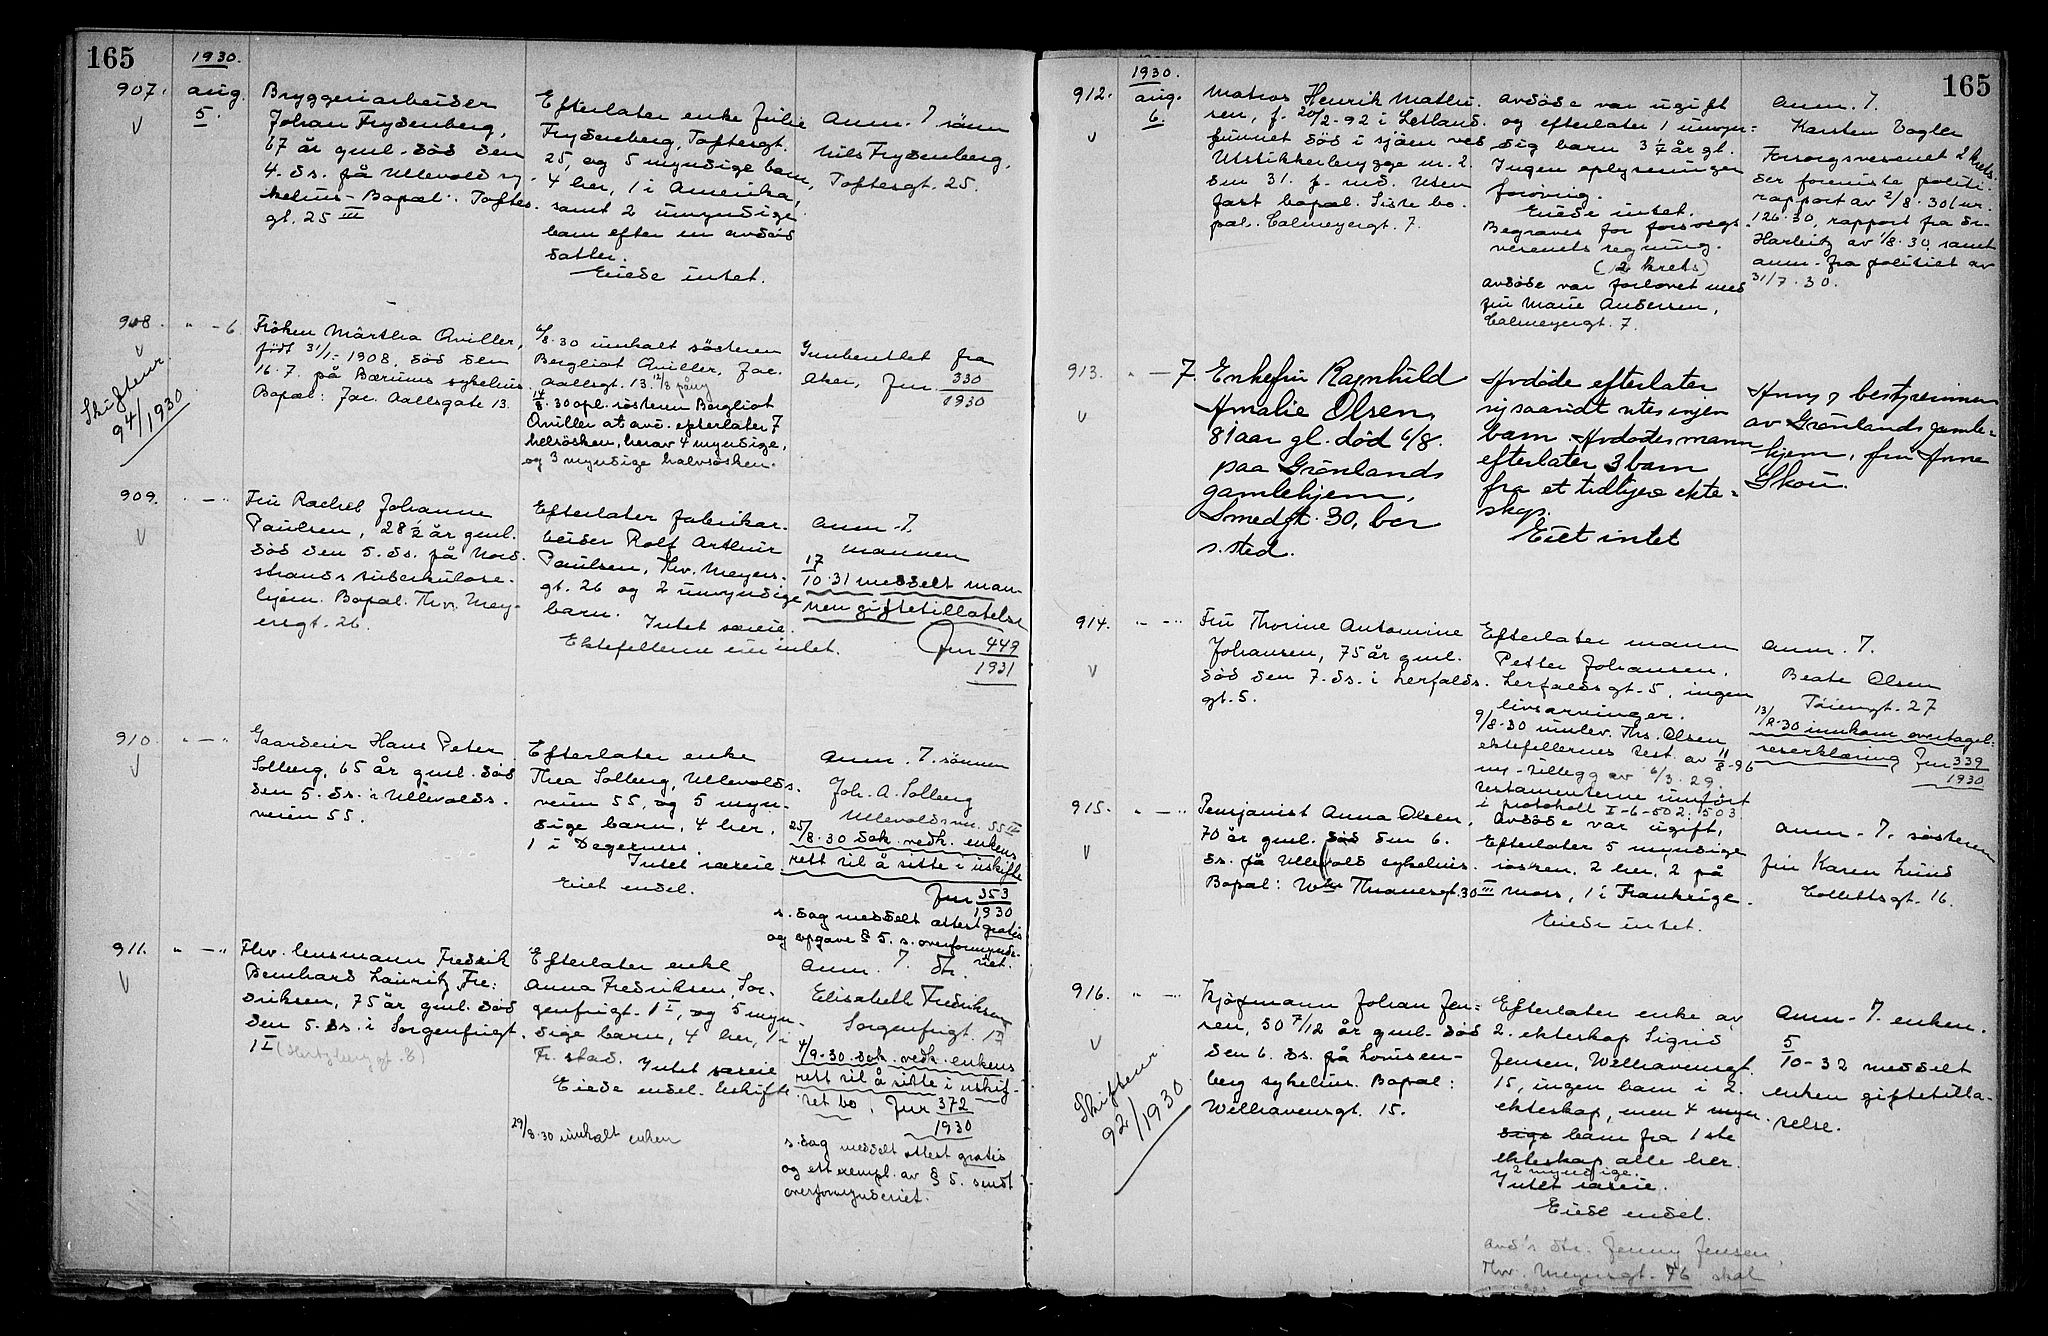 165
1930.
907.
aug.
5.
Bryggeriarbeider
Johan Frydenberg,
67 år gml. død den
4. ds. på Ullevold sy-
kehus - Bopæl: Toftes
gt. 25 III
Efterlater enke Julie
Frydenberg, Toftesgt.
25, og 5 myndige barn,
4 her, 1 i Amerika,
samt 2 umyndige
barn efter en avdød
datter.
Eiede intet.
Anm. 7 sønn
Nils Frydenberg,
Toftesgt. 25.
908.
" - 6
Skiftenr.
94/1930
Frøken Märtha Qviller,
født 31/1-1908, død den
16.7. på Bærums sykehus
Bopæl: Jac. Aallsgate 13.
6/8.30 innhalt søsteren
Bergliot Qviller, Jac.
Aallsgt. 13. 12/8 påny
14/8.30 opl. søsteren Bergliot
Qviller at avd. efterlater 7
helsøsken, herav 4 myndige,
og 3 myndige halvsøsken.
Innberettet fra
Aker, Jnr. 330
1930
909.
" - "
Fru Rachel Johanne
Paulsen, 28 1/2 år gml.
død den 5. ds. på Nord-
strands tuberkulose-
hjem. Bopæl. Thv. Mey-
ersgt. 26.
Efterlater fabrikar-
beider Rolf Arthur
Paulsen, Thv. Meyers-
gt. 26 og 2 umyndige
barn.
Intet særeie.
Ektefellerne eier intet.
Anm. 7.
mannen
17
10.31 meddelt man-
nen giftetillatelse
Jnr 449
1931
910.
" - "
Gaardeier Hans Peter
Solberg, 65 år gml. død
den 5. ds. i Ullevolds-
veien 55.
Efterlater enke
Thea Solberg, Ullevolds-
veien 55, og 5 myn-
dige barn, 4 her,
1 i Degernes.
Intet særeie
Eiet endel.
Anm. 7. sønnen
Joh. A. Solberg
Ullevoldsvn. 55 II
25/8.30 dok. vedk. enkens
rett til å sitte i uskifte
Jnr 353
1930
s. dag meddelt attest gratis
og opgave § 5. s. overformynde-
riet.
911.
" - "
Fhv. lensmann Fredrik
Bernhard Lauritz Fre-
driksen, 75 år gml. død
den 5. ds. i Sorgenfrigt.
1 I (Hertzbergs gt. 8)
Efterlater enke
Anna Fredriksen, Sor-
genfrigt. 1 I, og 5 myn-
dige barn, 4 her, 1 i
Fr.stad. Intet særeie
Eiede endel. Uskifte
29/8.30 innhalt enken
Anm. 7. dtr.
Elisabeth Fredriksen
Sorgenfrigt. 1 I
4/9-30. dok. vedk. enkens
rett til å sitte i uskif-
tet bo, Jnr 372
1930
s. dag meddelt attest gratis
og ett exempl. av § 5. sendt
overformynderiet.
165
1930.
912.
aug.
6.
Matros Henrik Mathi-
sen, f. 20/2-92 i Letland.
funnet død i sjøen ved
Utstikkerbrygge nr. 2
den 31. f. md. Uten
fast bopæl. Siste bo-
pæl. Calmeyergt. 7.
Avdøde var ugift
og efterlater 1 umyn-
dig barn 3 1/2 år gl.
Ingen oplysninger
forøvrig.
Eiede intet.
Begraves for forsorgs-
vesenets regning.
(2 krets)
Avdøde var forlovet med
fru Marie Andersen,
Calmeyergt. 7.
Anm. 7.
Karsten Vogler
Forsorgsvesenet 2 krets
der foreviste politi-
rapport av 2/8.30 Lnr.
126.30, rapport fra dr.
Harbitz av 1/8.30, samt
anm. fra politiet av
31/7.30.
913.
" - 7.
Enkefru Ragnhild
Amalie Olsen,
81 aar gl. død 6/8.
paa Grønlands
gamlehjem,
Smedgt. 30, bor
s. sted.
Avdøde efterlater
sig saavidt vites ingen
barn. Avdødes mann
efterlater 3 barn
fra et tidligere ekte-
skap.
Eiet intet
Anm. 7 bestyrerinnen
av Grønlands gamle-
hjem, fru Anne
Skou.
914.
" - "
Fru Thorine Antonine
Johansen, 75 år gml.
død den 7. ds. i Lerfalds-
gt. 5.
Efterlater mann
Petter Johansen,
Lerfaldsgt. 5, ingen
livsarvinger.
9/8-30 innlev. Ths. Olsen
ektefellernes test. av 11/8-96
m. tillegg av 6/3.29.
Testamenterne innført
i protokoll I-6-502, 503.
Anm. 7.
Beate Olsen
Tøiengt. 27
13/8.30 innkom overtagel-
seserklæring, Jnr 339
1930
915.
" - "
Pensjonist Anna Olsen,
70 år gml. død den 6.
ds. på Ullevold sykehus.
Bopæl: Wm Thranesgt. 30 III
Avdøde var ugift,
Efterlater 5 myndige
søsken, 2 her, 2 på
Moss, 1 i Frankrige.
Eiede intet.
Anm. 7. søsteren
fru Karen Lund
Collettsgt. 16.
916.
" - "
Skiftenr.
92/1930
Kjøpmann Johan Jen-
sen, 50 7/12 år gml. død
den 6. ds. på Lovisen-
berg sykehus. Bopæl:
Welhavensgt. 15.
Efterlater enke av
2. ekteskap Sigrid
Jensen, Welhavensgt.
15, ingen barn i 2.
ekteskap, men 4 myn-
dige barn fra 1ste
ekteskap alle her.
2 myndige.
Intet særeie.
Eiede endel.
avd's dtr. Jenny Jensen,
Thv. Meyersgt. 76 skal
Anm. 7. enken.
5
10-32 meddelt
enken giftetilla-
telse.